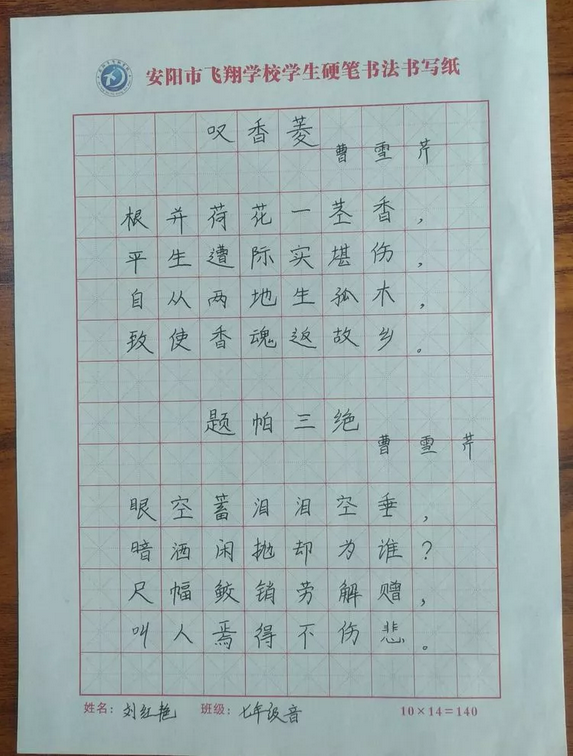 安阳市飞翔学校学生硬笔书法书写纸
叹香菱
曹雪芹
根并荷花一茎香，
平生遭际实堪伤，
自从两地生孤木，
致使香魂返故乡。
题帕三绝
曹雪芹
眼空蓄泪泪空垂，
暗洒闲抛却为谁？
尺幅鲛销劳解赠，
叫人焉得不伤悲。
姓名：刘红艳 班级：七年级音 10×14=140